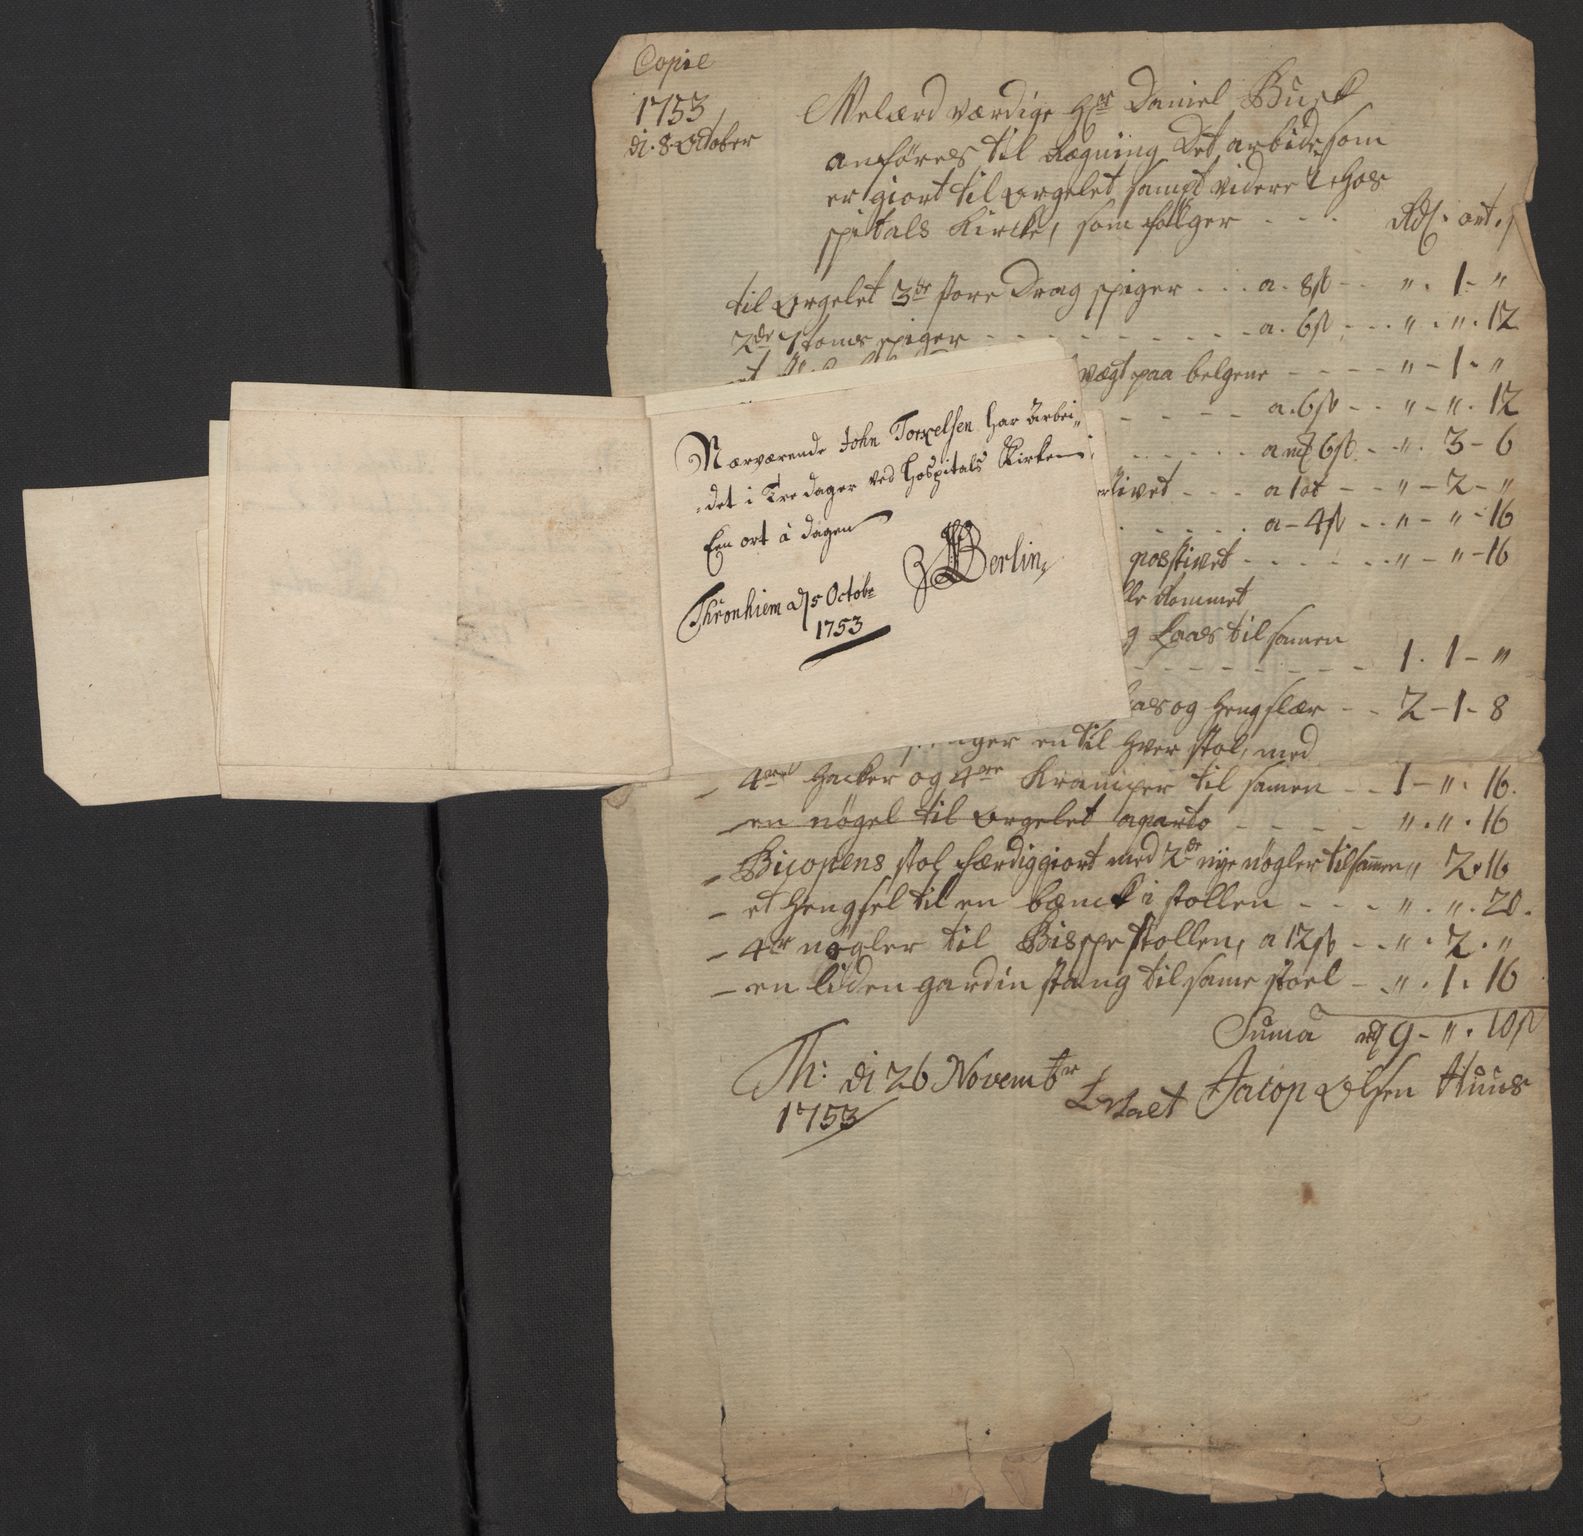 Copie
1753
di. 8 October
Velærd værdige Hr Daniel Busk
anføres til Rægning Det arbide som
er giort til orgelet sampt videre i Hos
spitals Kircke, som følger - - - Rdl. ort. ß
til orgelet 3de store Drag spiger - - - a. 8ß - - " . 1 - "
2de Stoms spiger - - - a. 6ß - - - " . " . 12
vægt paa belgene - - - - " - 1 - "
- - - a. 6ß - - " - " . 12
- - - a mk 6ß - - " . 3 - 6
- - - a 1 ort - - " - 2 - "
- - - a - 4ß - - " - " - 16
possitivet - - - " - " - 16
Kommet
g Laas til samen
- - - 1 . 1 - "
og Hengslær - - 2 - 1 - 8
en til hver stol, med
- 4re Hacker og 4re Kramper til samen - - 1 - " . 16.
- en nøgel til orgelet aparto - - - " . " . 16
- Bispens stol færdiggiort med 2de nye nøgler tilsamen " 2 . 16
- et Hengsel til en bænck i stollen - - - " . " . 20.
- 4re nøgler til Bispe stollen, a 12ß - - " . 2 . "
- en liden gardin stang til same stoel - - " . 1 . 16
Suma rd 9 - " . 10ß
Th: di 26 Novembr
1753
Jacop Olsen Huus
Nærværende John Torkelsen har Arbei,,
,,det i Tre dager ved Hospitals Kirken
Een ort à dagen
Thronhiem d 5 Octobr
1753
Berlin